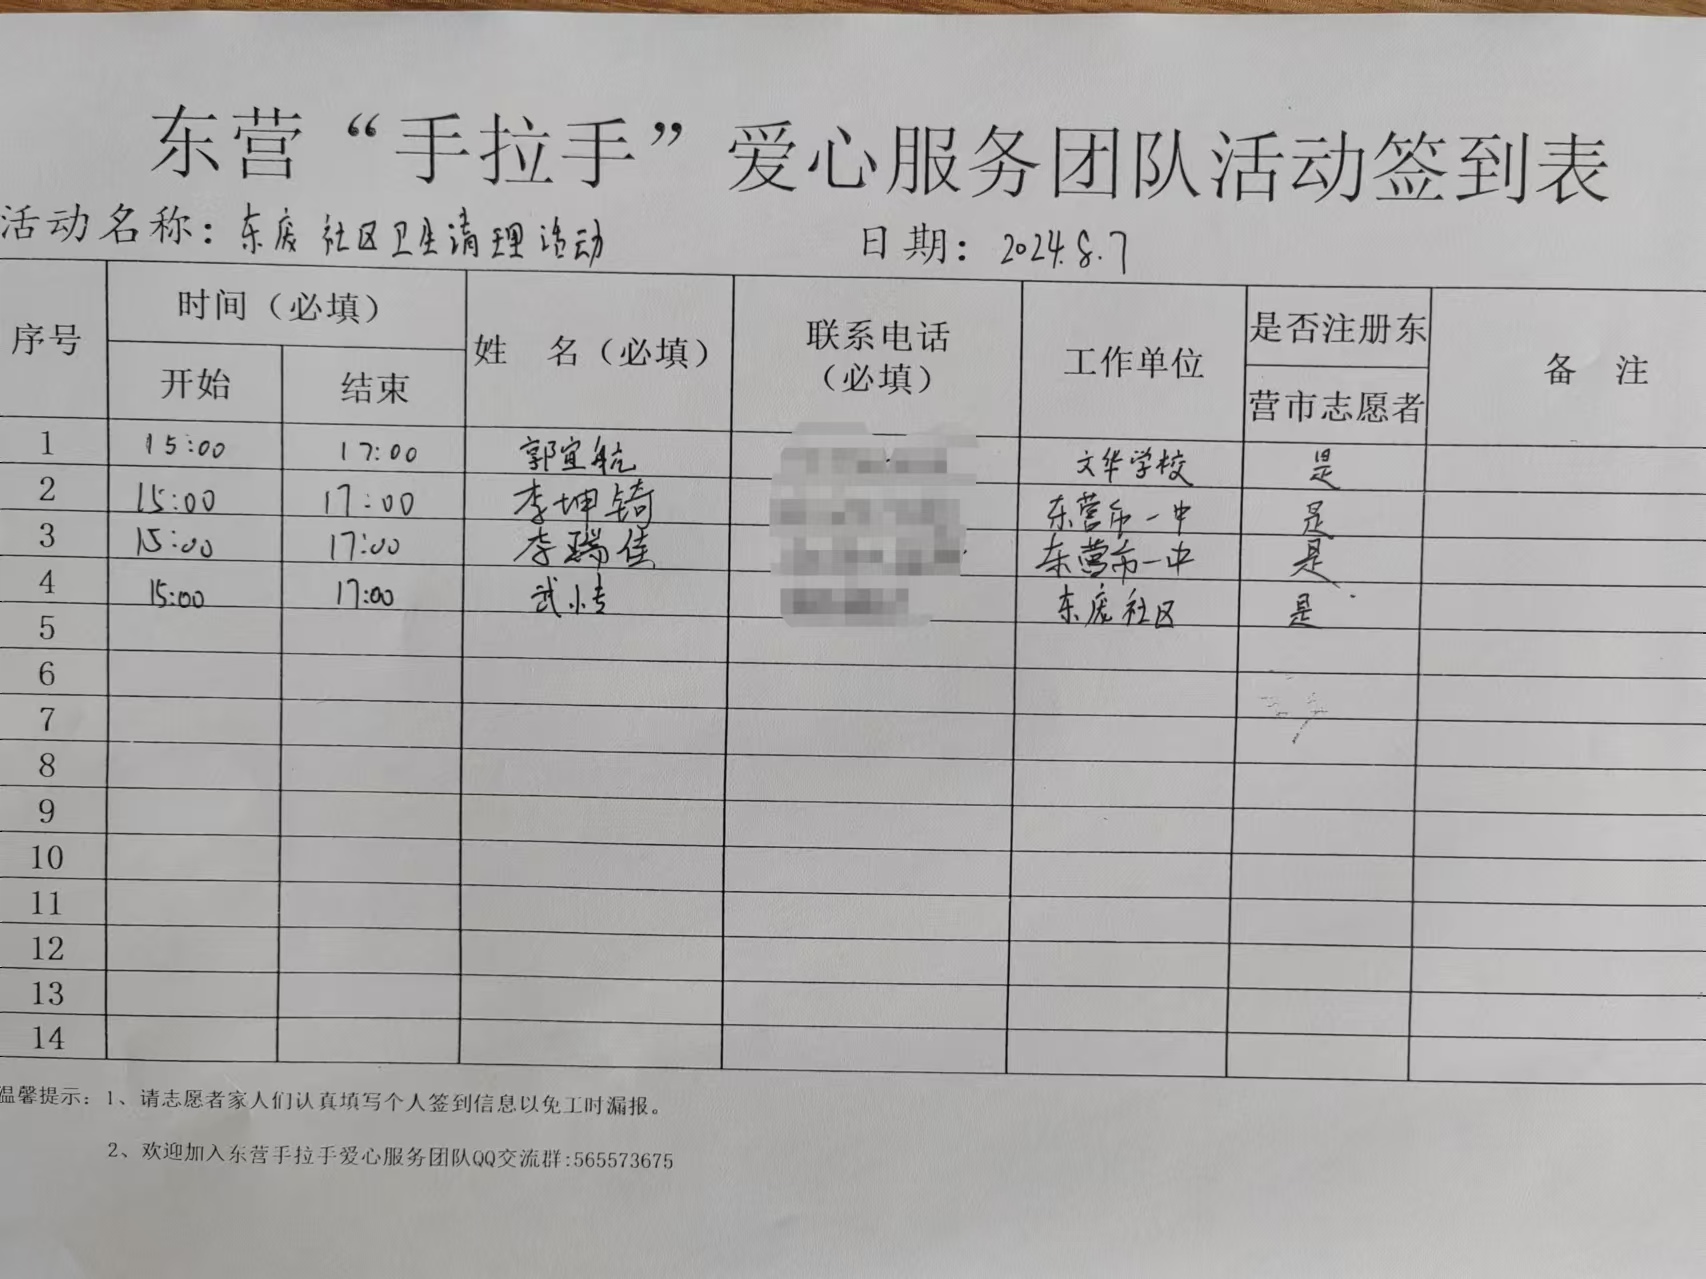 东营“手拉手”爱心服务团队活动签到表
活动名称：东庞社区卫生清理活动 日期：2024.8.7
序号 时间（必填） 开始 结束 姓 名（必填） 联系电话（必填） 工作单位 是否注册东营市志愿者 备 注
1 15:00 17:00 郭宜航 文华学校 是
2 15:00 17:00 李坤锜 东营市一中 是
3 15:00 17:00 李瑞佳 东营市一中 是
4 15:00 17:00 武小 东庞社区 是
5
6
7
8
9
10
11
12
13
14
温馨提示：1、请志愿者家人们认真填写个人签到信息以免工时漏报。
2、欢迎加入东营手拉手爱心服务团队QQ交流群:565573675